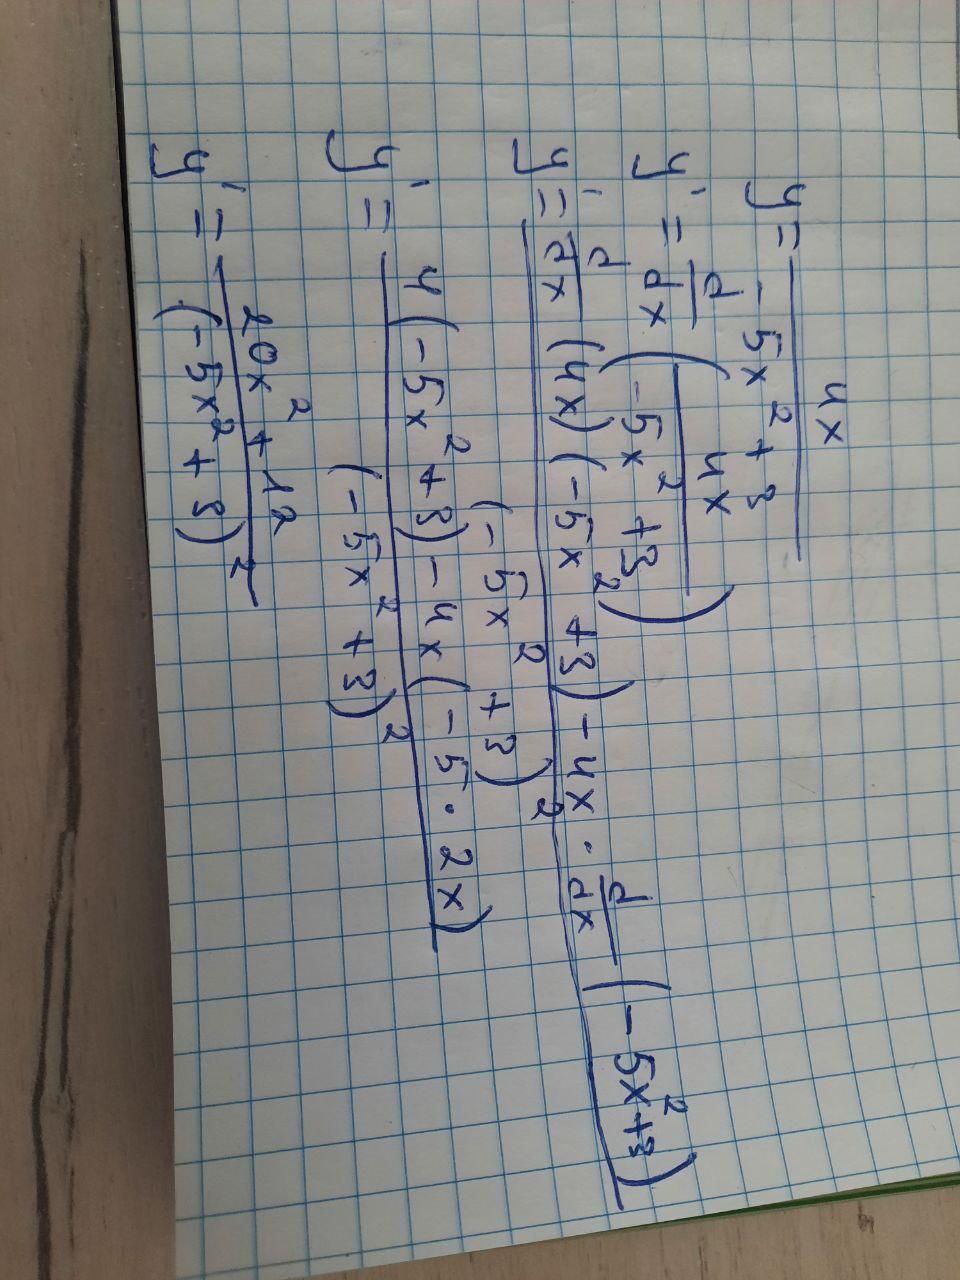 y = 4x / (-5x² + 3)
y' = d/dx (4x / (-5x² + 3))
y' = (d/dx (4x)(-5x² + 3) - 4x · d/dx (-5x² + 3)) / (-5x² + 3)²
y' = (4(-5x² + 3) - 4x(-5 · 2x)) / (-5x² + 3)²
y' = (20x² + 12) / (-5x² + 3)²